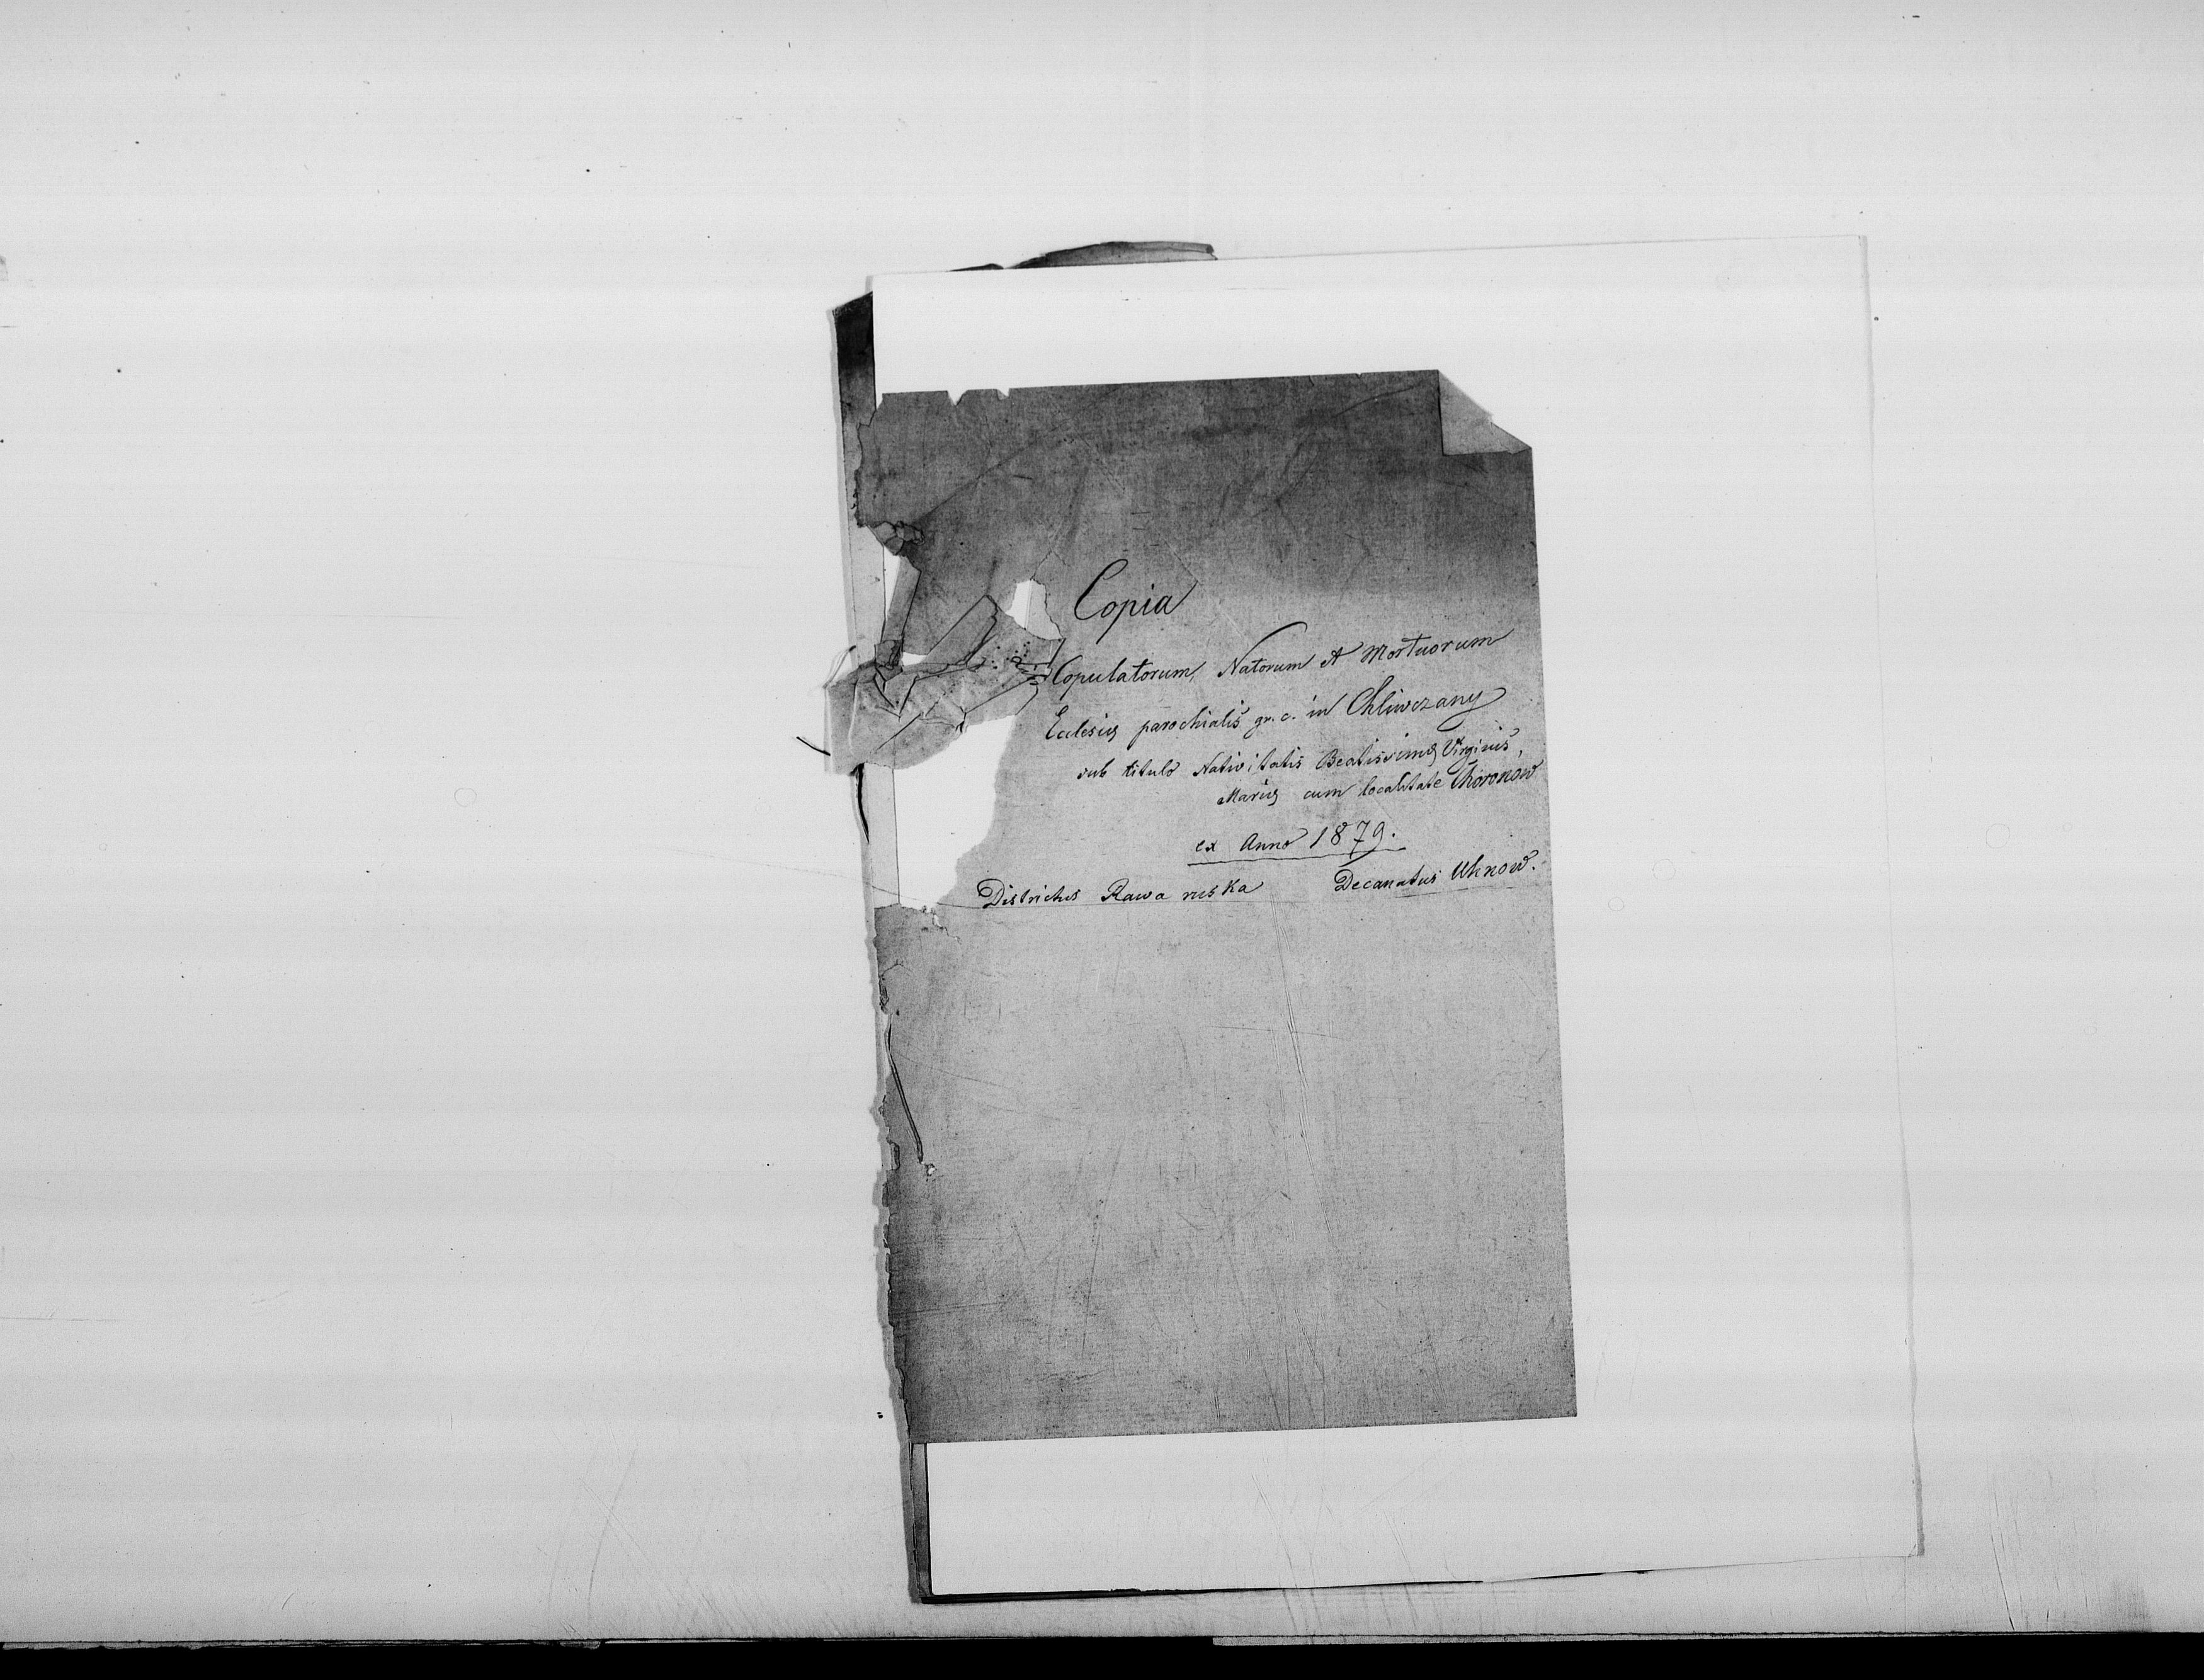 Copia
Copulatorum, Natorum et Mortuorum
Eclesiæ parochialis gr. c. in Chliwczany
sub titulo Nativitatis Beatissimæ Virginis,
Mariæ cum localitate Choronow
ex Anno 1879.
Districtus Rawa ruska Decanatus Uhnow.